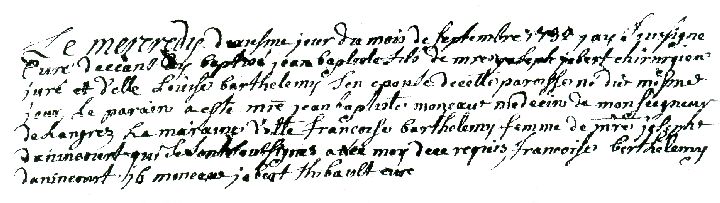 Le mercredy jour du mois de septembre jay soussigne
cure baptisé jean baptiste fils de jobert chirurgien
juré et d'elle Louise barthelemy son epouse de cette paroisse né du mesme
jour Le parain a esté mre jean baptiste monceau medecin de monseigneur
de Langres La maraine d'elle francoise barthelemy femme de mre joseph
danincourt qui se sont soussignes avec moy de ce requis francoise berthelemy
danincourt jb monceau jobert thibault cure